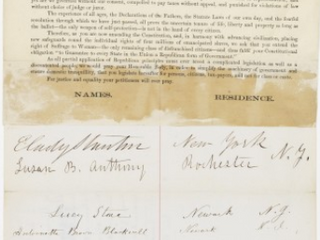 out our consent, compelled to pay taxes without appeal, and punished for violations of law
without choice of judge or juror.
The experience of all ages, the Declarations of the Fathers, the Statute Laws of our own day, and the fearful
revolution through which we have just passed, all prove the uncertain tenure of life, liberty and property so long as
the ballot—the only weapon of self-protection—is not in the hand of every citizen.
Therefore, as you are now amending the Constitution, and, in harmony with advancing civilization, placing
new safeguards round the individual rights of four millions of emancipated slaves, we ask that you extend the
right of Suffrage to Woman—the only remaining class of disfranchised citizens—and thus fulfil your Constitutional
obligation "to Guarantee to every State in the Union a Republican form of Government."
As all partial application of Republican principles must ever breed a complicated legislation as well as a
discontented people, we would pray your Honorable Body, in order to simplify the machinery of government and
ensure domestic tranquillity, that you legislate hereafter for persons, citizens, tax-payers, and not for class or caste.
For justice and equality your petitioners will ever pray.
NAMES. RESIDENCE.
E. Cady Stanton New York
Susan B. Anthony Rochester N.Y.
Lucy Stone Newark N.J.
Antoinette Brown Blackwell Newark N.J.